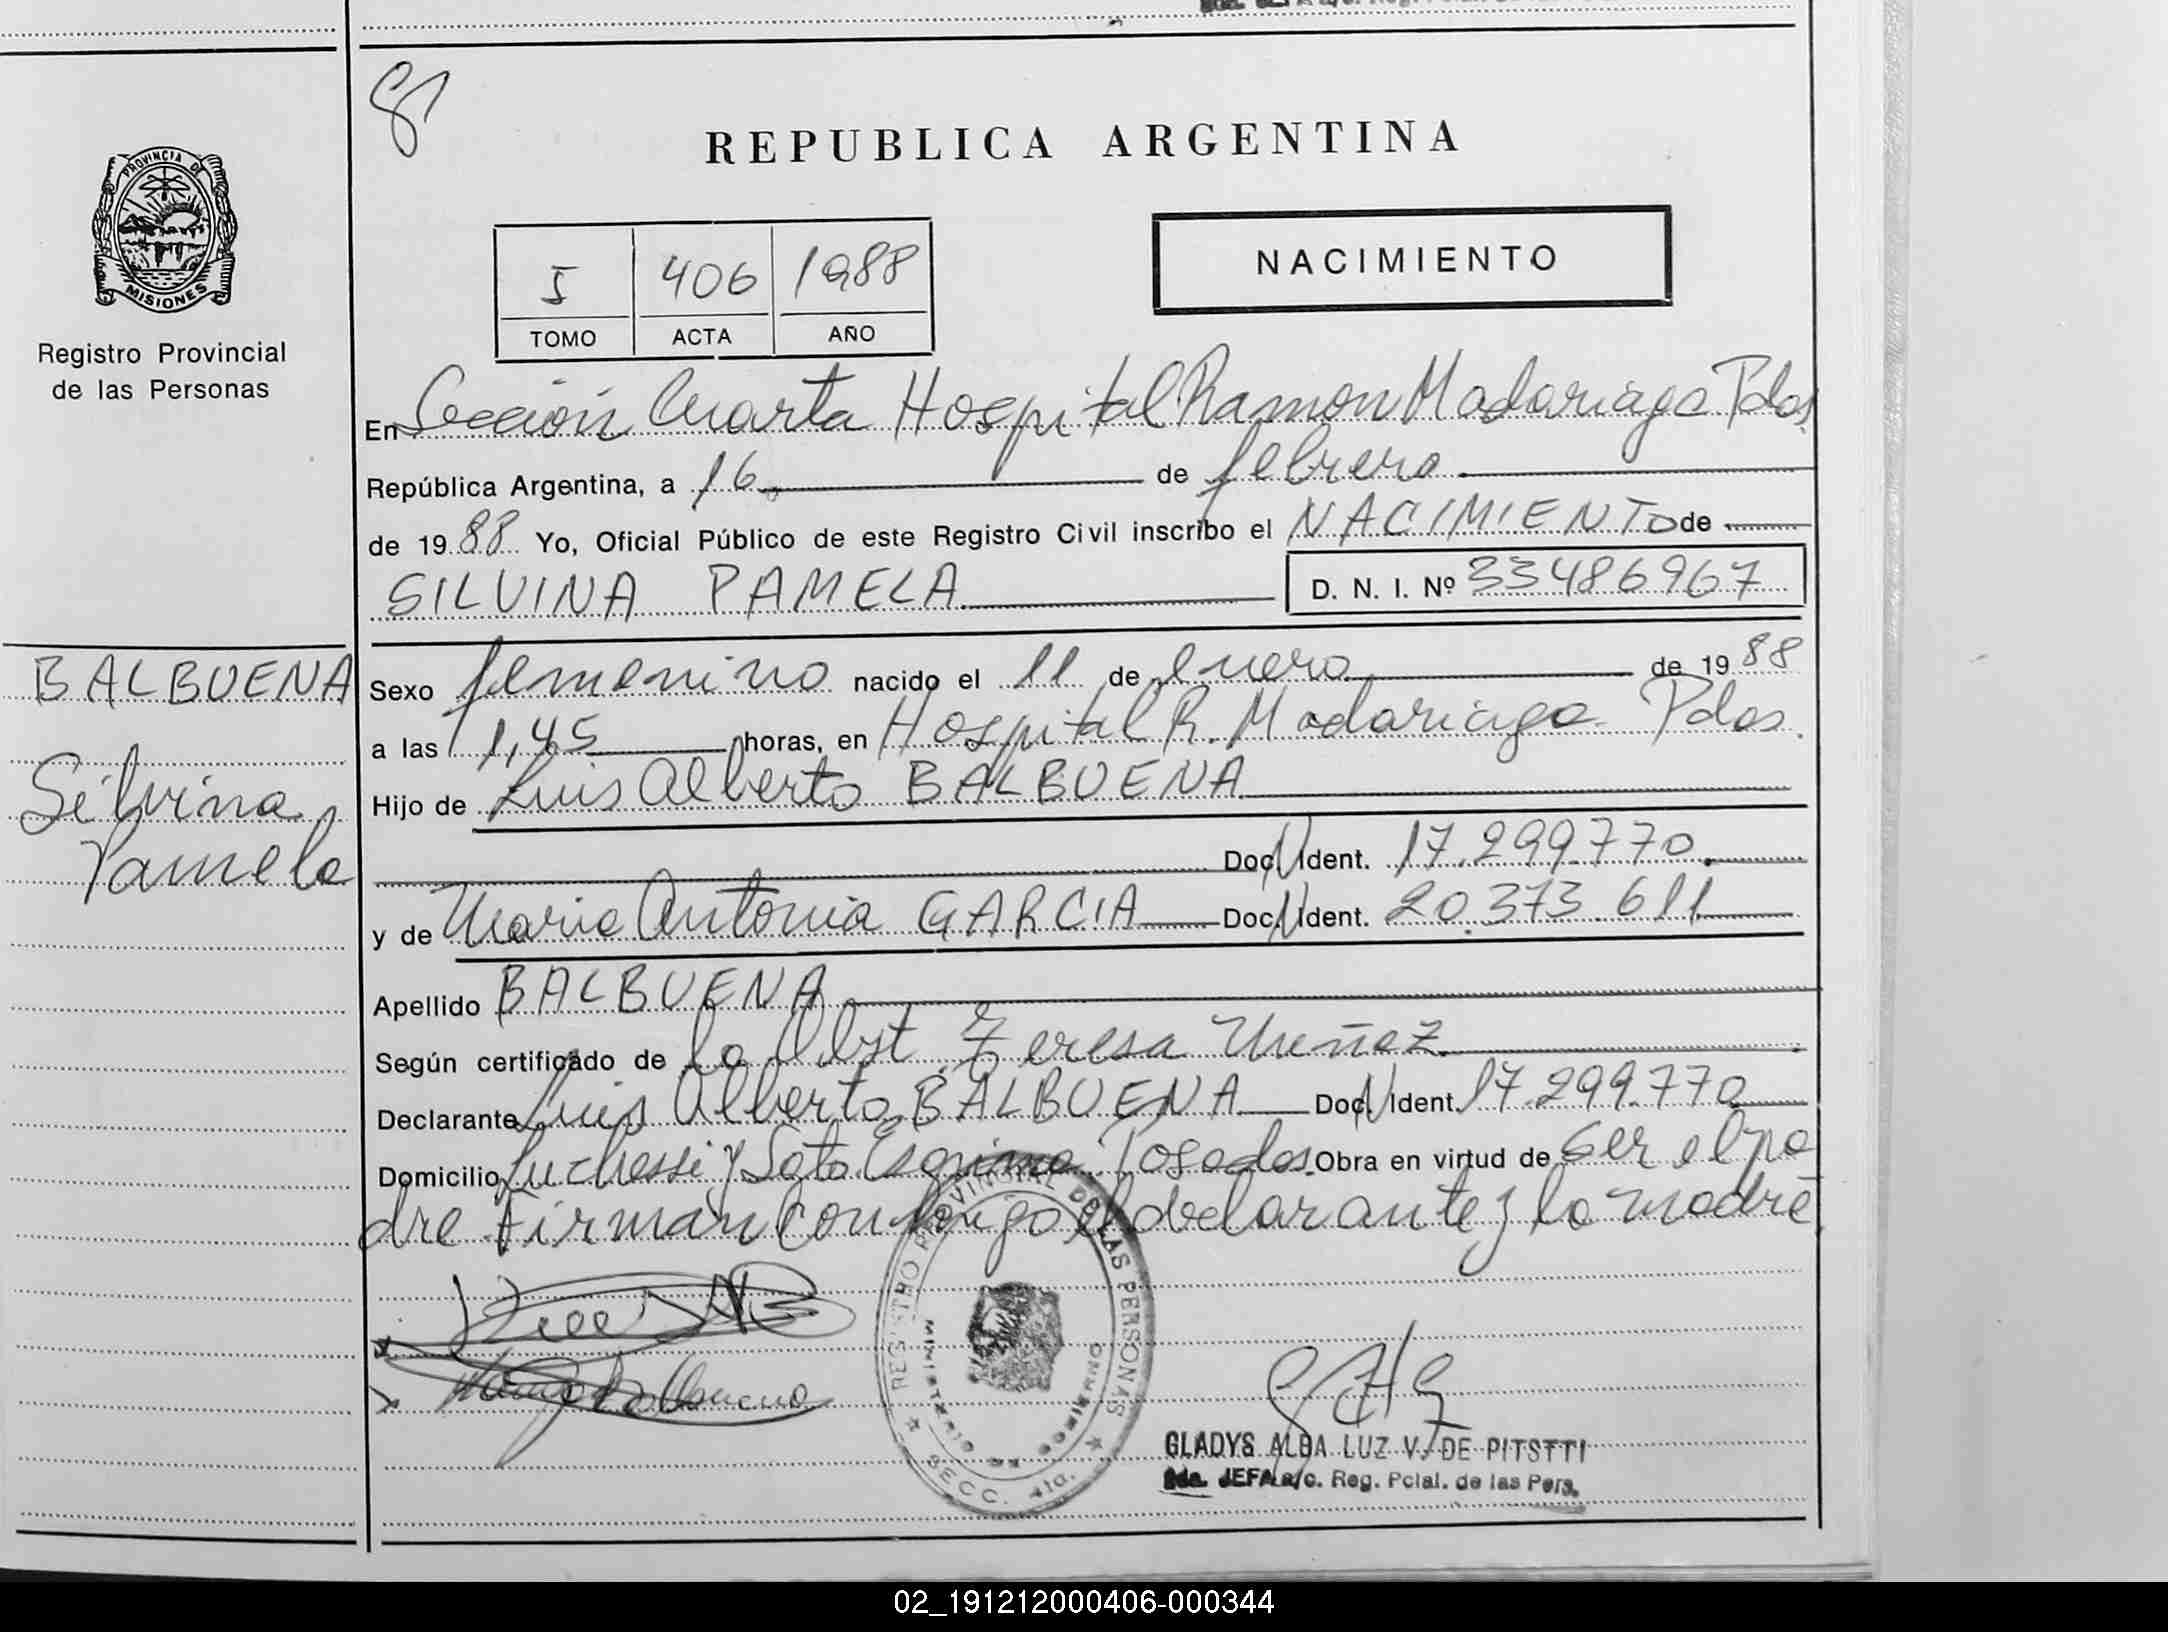 81
REPUBLICA ARGENTINA
PROVINCIA DE
MISIONES
Registro Provincial
de las Personas
NACIMIENTO
I 406 1988
TOMO ACTA AÑO
En Sección Cuarta Hospital Ramon Madariaga Pdas
República Argentina, a 16 de febrero
de 1988 Yo, Oficial Público de este Registro Civil inscribo el NACIMIENTO de
SILVINA PAMELA D. N. I. Nº 33486967
BALBUENA
Silvina
Pamela
Sexo femenino nacido el 11 de enero de 1988
a las 1,45 horas, en Hospital R. Madariaga Pdas.
Hijo de Luis Alberto BALBUENA
Doc. N Ident. 17.299.770
y de Maria Antonia GARCIA Doc. N Ident. 20.373.611
Apellido BALBUENA
Según certificado de la Obst Teresa Nuñez
Declarante Luis Alberto BALBUENA Doc. N Ident. 17.299.770
Domicilio Luchessi y Soto Esquina Posadas. Obra en virtud de ser el pa
dre Firman conmigo el declarante y la madre
REGISTRO PROVINCIAL DE LAS PERSONAS
MINISTERIO DE GOBIERNO
SECC. 4ta.
GLADYS ALBA LUZ V. DE PITSTTI
2da. JEFA a/c. Reg. Pcial. de las Pers.
02_191212000406-000344